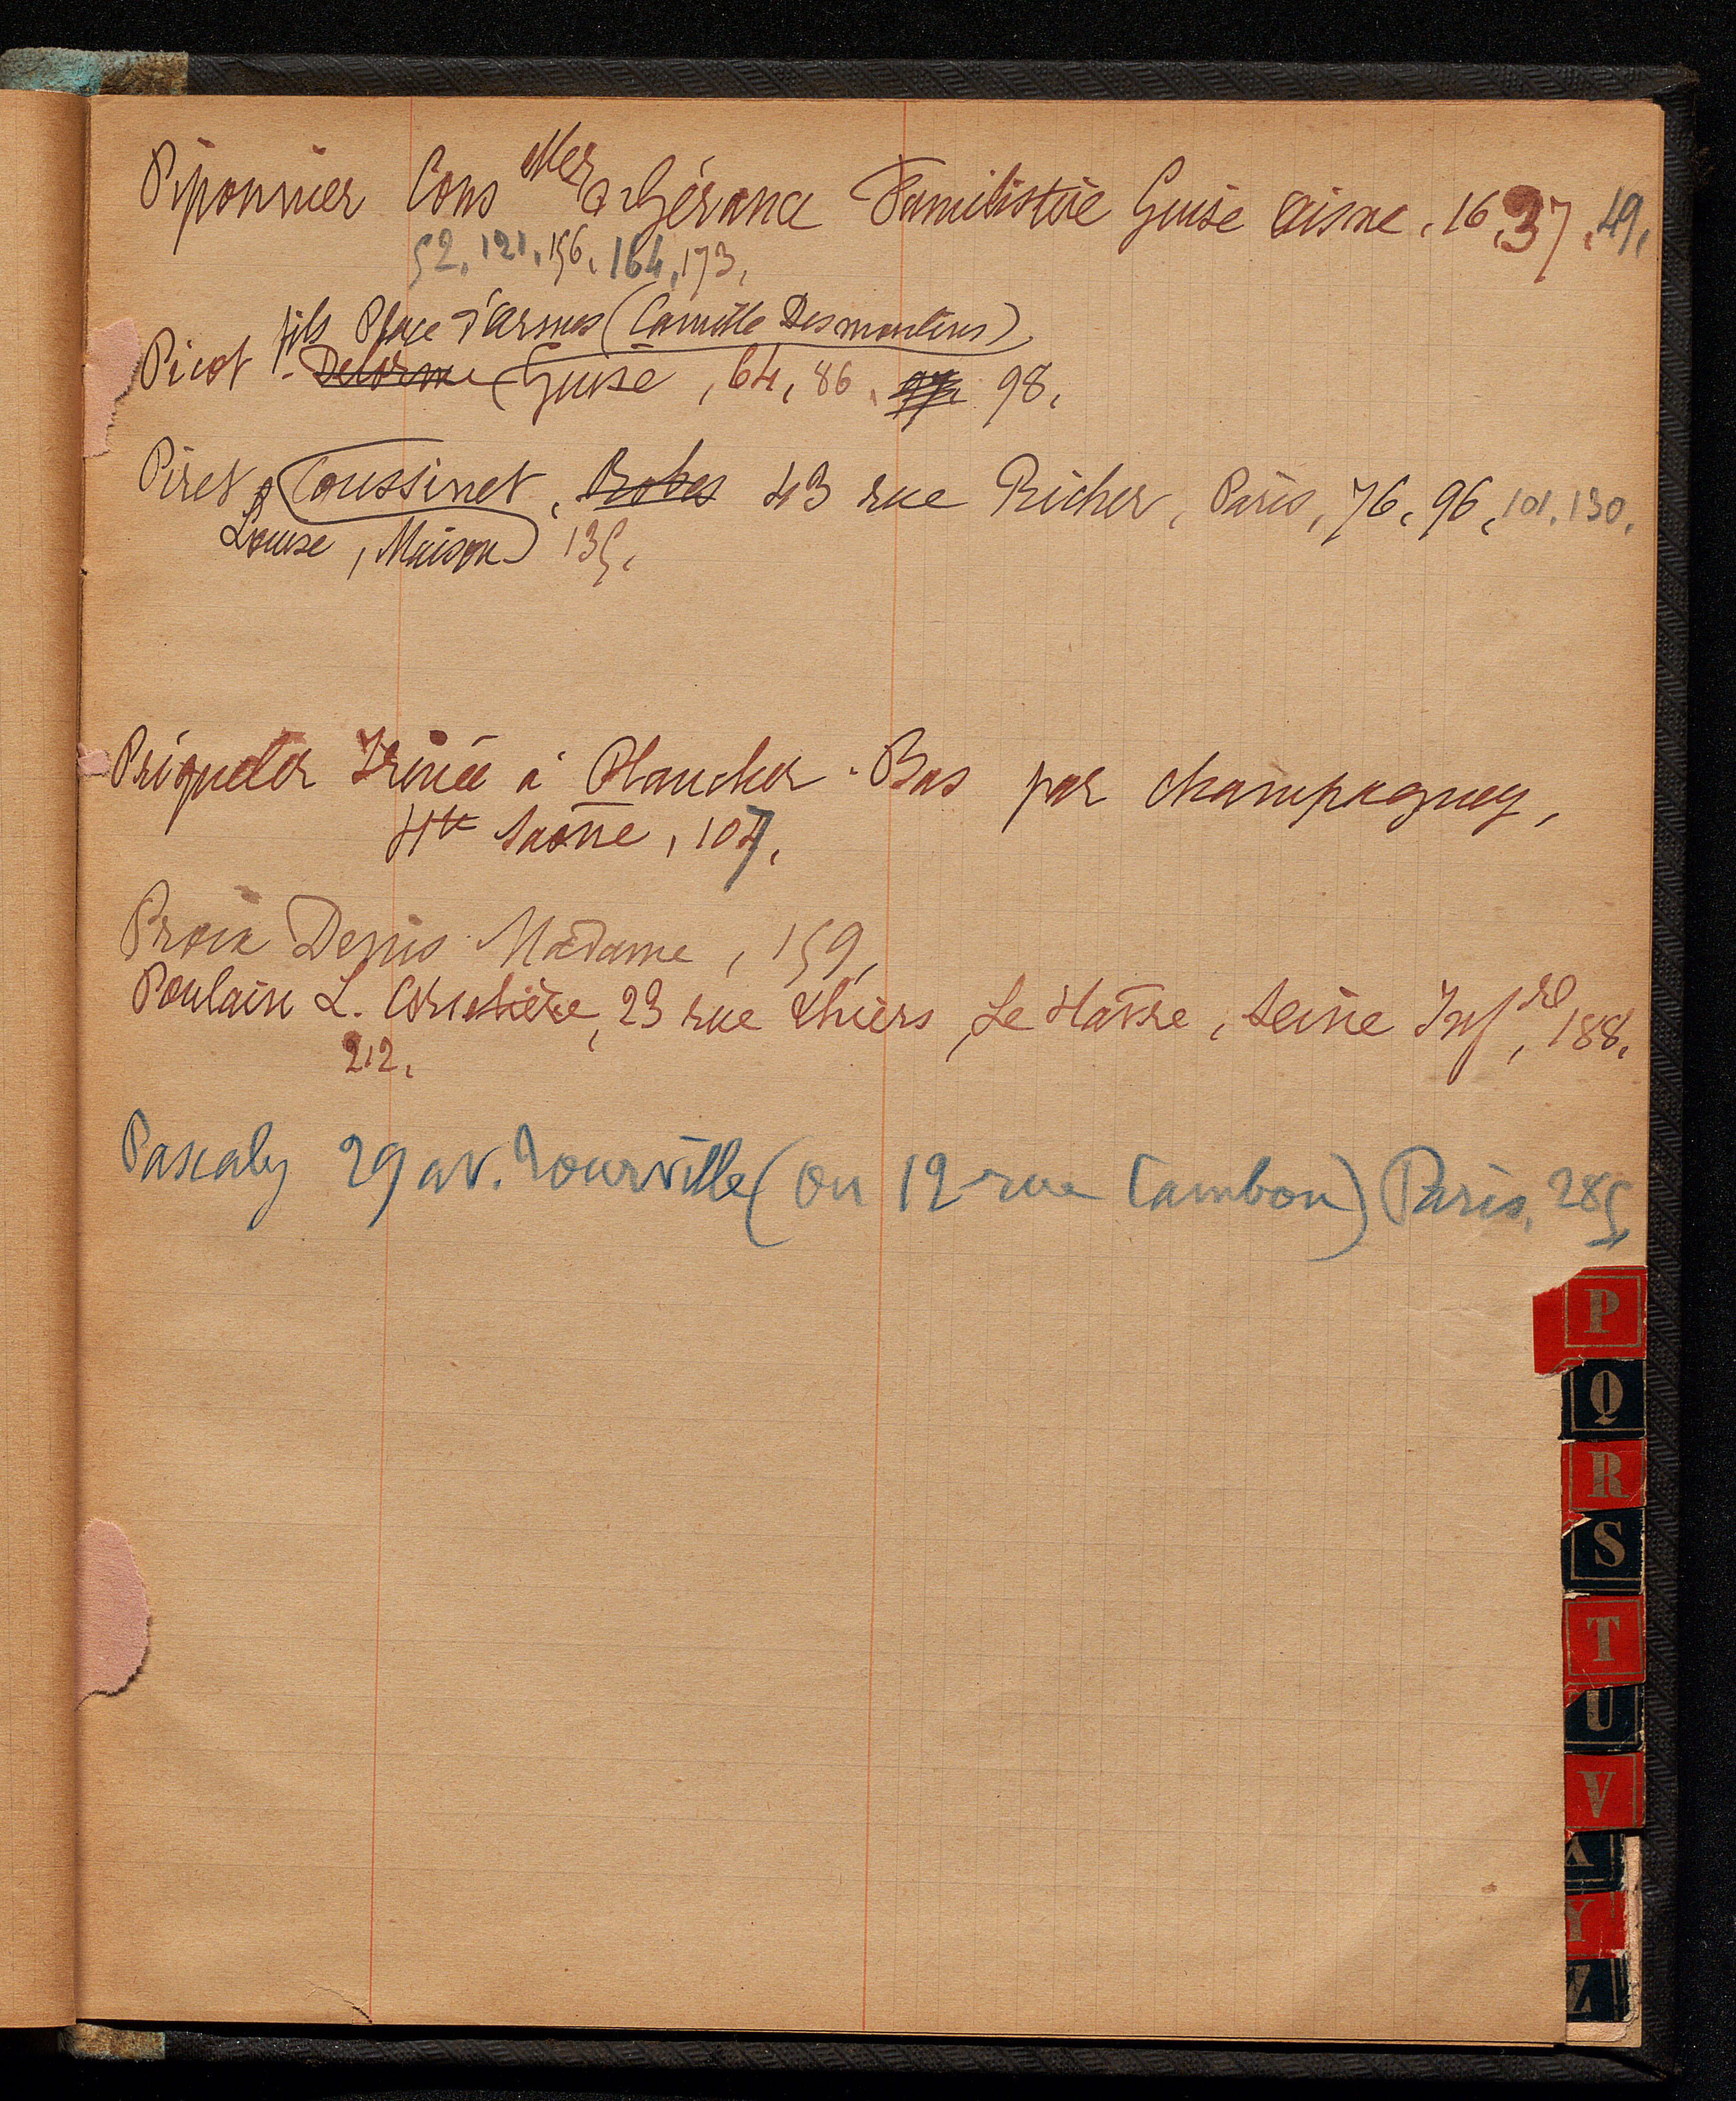 Piponnier Cons eller de Gérance Familistère Guise Aisne, 16, 37, 49,
52, 121, 156, 164, 173,
fils Place d'Armes (Camille Desmoulins)
Picot - Delorme Guise, 64, 86, 98,
Piret & Coussinet, Robes 43 rue Richer, Paris, 76, 96, 101, 130,
Louise, Maison 135,
Priqueler Irénée à Plancher-Bas par Champagney,
Hte Saône, 107,
Proix Denis Madame, 159,
Poulain L. Corsetière, 23 rue Thiers, Le Havre, Seine Infre, 188,
212,
Pascaly 29 av. Tourville (ou 12 rue Cambon) Paris, 285
P
Q
R
S
T
U
V
X
Y
Z